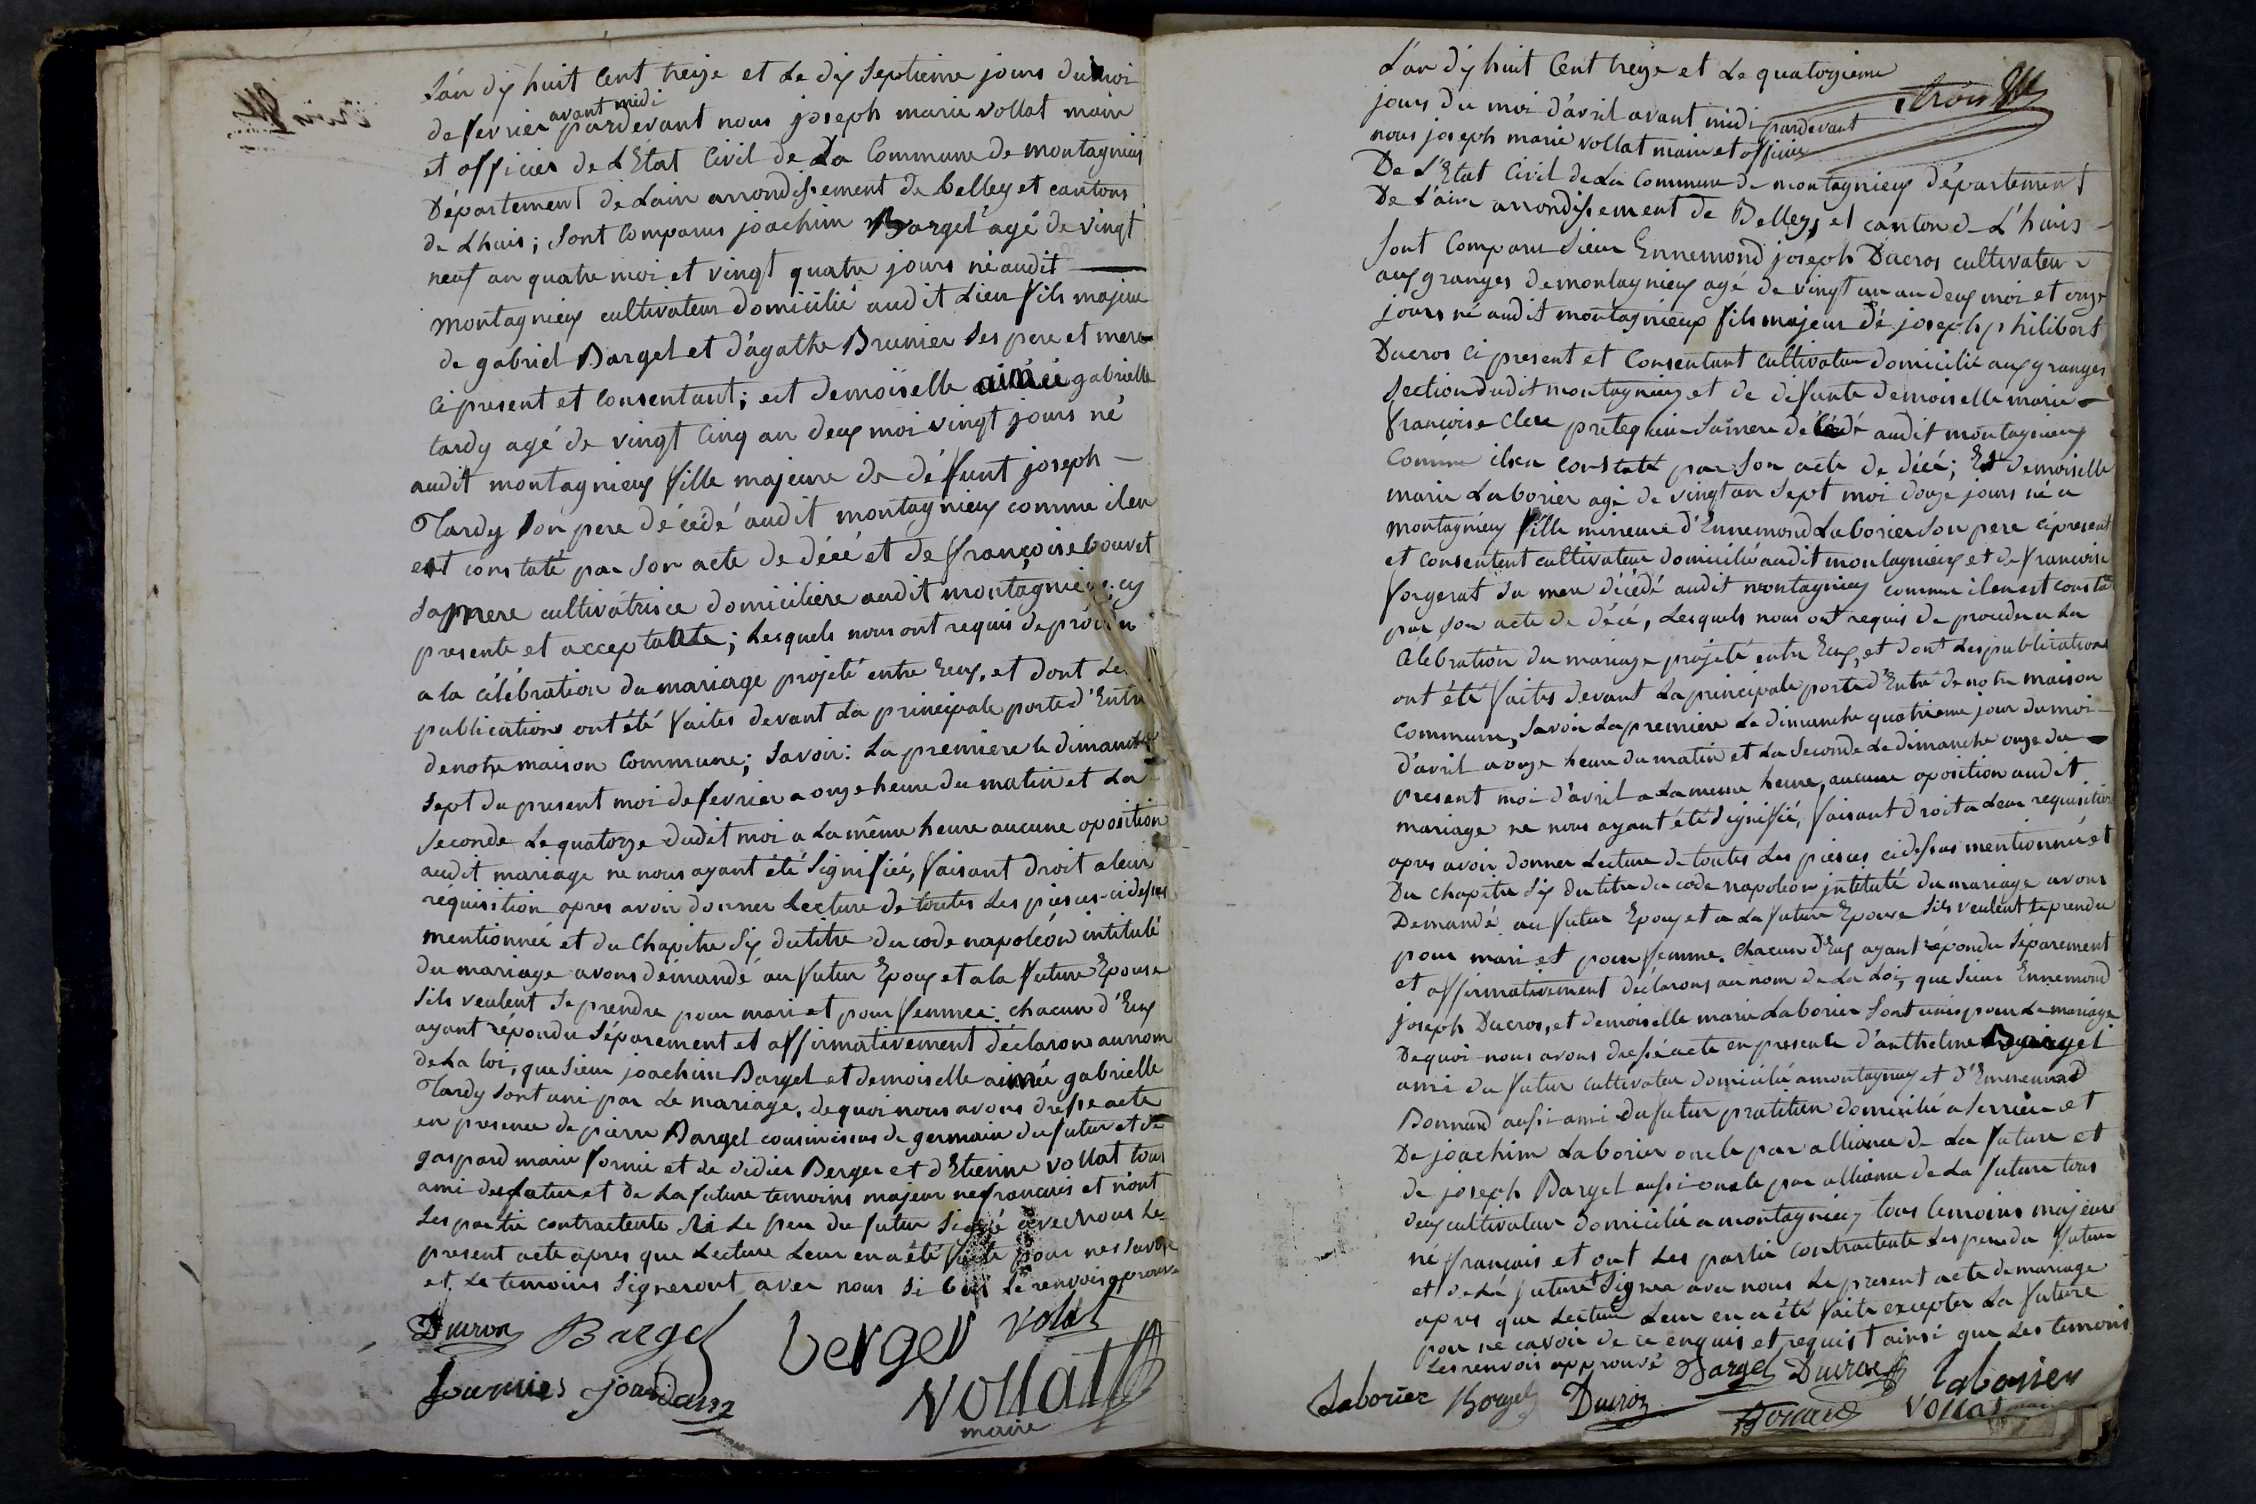 L'an dix huit Cent treize et Le dix Septieme jours du moi
de fevrier avant midi pardevant nous joseph marie vollat maire
et officier de L'Etat Civil de La Commune de montagnieux
Département de Lain arrondissement de belley et cantons
de Lhuis; Sont Comparus joachim Bargel agé de vingt
neuf an quatre moi et vingt quatre jours né audit
montagnieux cultivateur domicilié audit Lieu fils majeur
de gabriel Bargel et d'agathe Brunier Ses pere et mere
Ci present et Consentant; est demoiselle aimée gabrielle
tardy agé de vingt Cinq an deux moi vingt jours né
audit montagnieux fille majeure de défunt joseph
Tardy Son pere décédé audit montagnieux comme il en
est constaté par Son acte de décé et de françoise bouvet
Sa mere cultivatrice domiciliere audit montagnieux; cy
presente et acceptante; Lesquels nous ont requis de procéder
a la célébration du mariage projeté entre Eux, et dont Les
publications ont été faites devant La principale porte d'Entré
de notre maison Commune; Savoir: La premiere le dimanche
Sept du present moi de fevrier a onze heure du matin et La
Seconde Le quatorze dudit moi a La même heure aucune oposition
audit mariage ne nous ayant été Signifiée, faisant droit a leur
réquisition apres avoir donner Lecture de toutes Les pieces ci dessus
mentionnée et du Chapitre Six du titre du code napoléon intitulé
du mariage avons démandé au futur Epoux et a la future Epouse
Sils veulent Se prendre pour mari et pour femme: chacun d'Eux
ayant répondu Séparement et affirmativement déclarons au nom
de La loi, que Sieur joachim Bargel et demoiselle aimée gabrielle
Tardy Sont uni par Le mariage, de quoi nous avons dressé acte
en presence de pierre Bargel cousin issus de germain du futur et de
gaspard marie fornie et de didier Berger et d'Etienne vollat tous
ami du futur et de La future temoins majeur né francais et n'ont
Les partie contractente ni Le pere du futur Signé avec nous Le
present acte apres que Lecture Leur en a été faite pour ne Savoir
et Le temoins Signeront avec nous Le renvois aprouvé
Ducros Bargel berger vollat
fournier jourdan vollat
maire
L'an dix huit Cent treize et Le quatorzieme
trois
jours du moi d'avril avant midi pardevant
nous joseph marie vollat maire et officier
De L'Etat Civil de La Commune de montagnieux département
De L'ain arrondissement de Belley, et canton de L'huis
Sont Comparu Sieur Ennemond joseph Ducros cultivateur
aux granges de montagnieux agé de vingt un an deux moi et onze
jours né audit montagnieux fils majeur dé joseph philibert
Ducros Ci present et Consentant Cultivateur domicilié aux granges
Section dudit montagnieux et de défunte demoiselle marie
francoise Clere Sa mere décédé audit montagnieux
Comme il en Constaté par Son acte de décé; Et demoiselle
marie Laborier agé de vingt an Sept moi douze jours né a
montagnieux fille mineure d'Ennemond Laborier Son pere ci present
et Consentent cultivateur domicilié audit montagnieux et de francoise
forgerat Sa mere décédé audit montagnieux comme il en est constaté
par Son acte de décé, Lesquels nous ont requis de proceder a La
Célébration du mariage projeté entre Eux, et dont Les publications
ont été faites devant La principale porte d'Entré de notre maison
Commune, Savoir La premiere Le dimanche quatrieme jour du moi
d'avril a onze heure du matin et La Seconde Le dimanche onze du
present moi d'avril a La meme heure, aucune oposition audit
mariage ne nous ayant été Signifié, faisant droit a Leur requisition
apres avoir donner Lecture de toutes Les pieces ci dessus mentionnée et
Du Chapitre Six du titre du code napoléon intitulé du mariage avons
Demandé au futur Epoux et a La future Epouse Sils veulent Se prendre
pour mari et pour femme. Chacun d'Eux ayant répondu Séparement
et affirmativement déclarons au nom de La Loi, que Sieur Ennemond
joseph Ducros, et demoiselle marie Laborier Sont unis pour Le mariage
De quoi nous avons dressé acte en presence d'anthelme Bargel
ami du futur cultivateur domicilié a montagnieux et d'Ennemond
Bonnard aussi ami du futur pratitien domicilié a Serrière et
De joachim Laborier oncle par alliance de La future et
de joseph Bargel aussi oncle par alliance de La future tous
deux cultivateur domicilié a montagnieux tous temoins majeur
né français et ont Les partie Contractente Les pere du futur
et de La future Signée avec nous Le present acte de mariage
apres que Lecture Leur en a été faite excepter La future
pour ne Savoir de ce enquis et requis ainsi que Les temoins
Les renvois approuvé Bargel Ducros Laborier
Laborier Bargel Ducros Bonard vollat